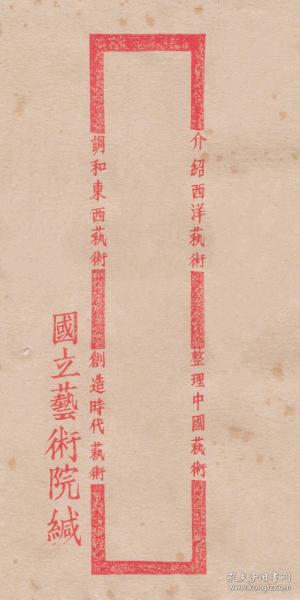 介紹西洋藝術
整理中國藝術
調和東西藝術
創造時代藝術
國立藝術院緘
孔夫子旧书网